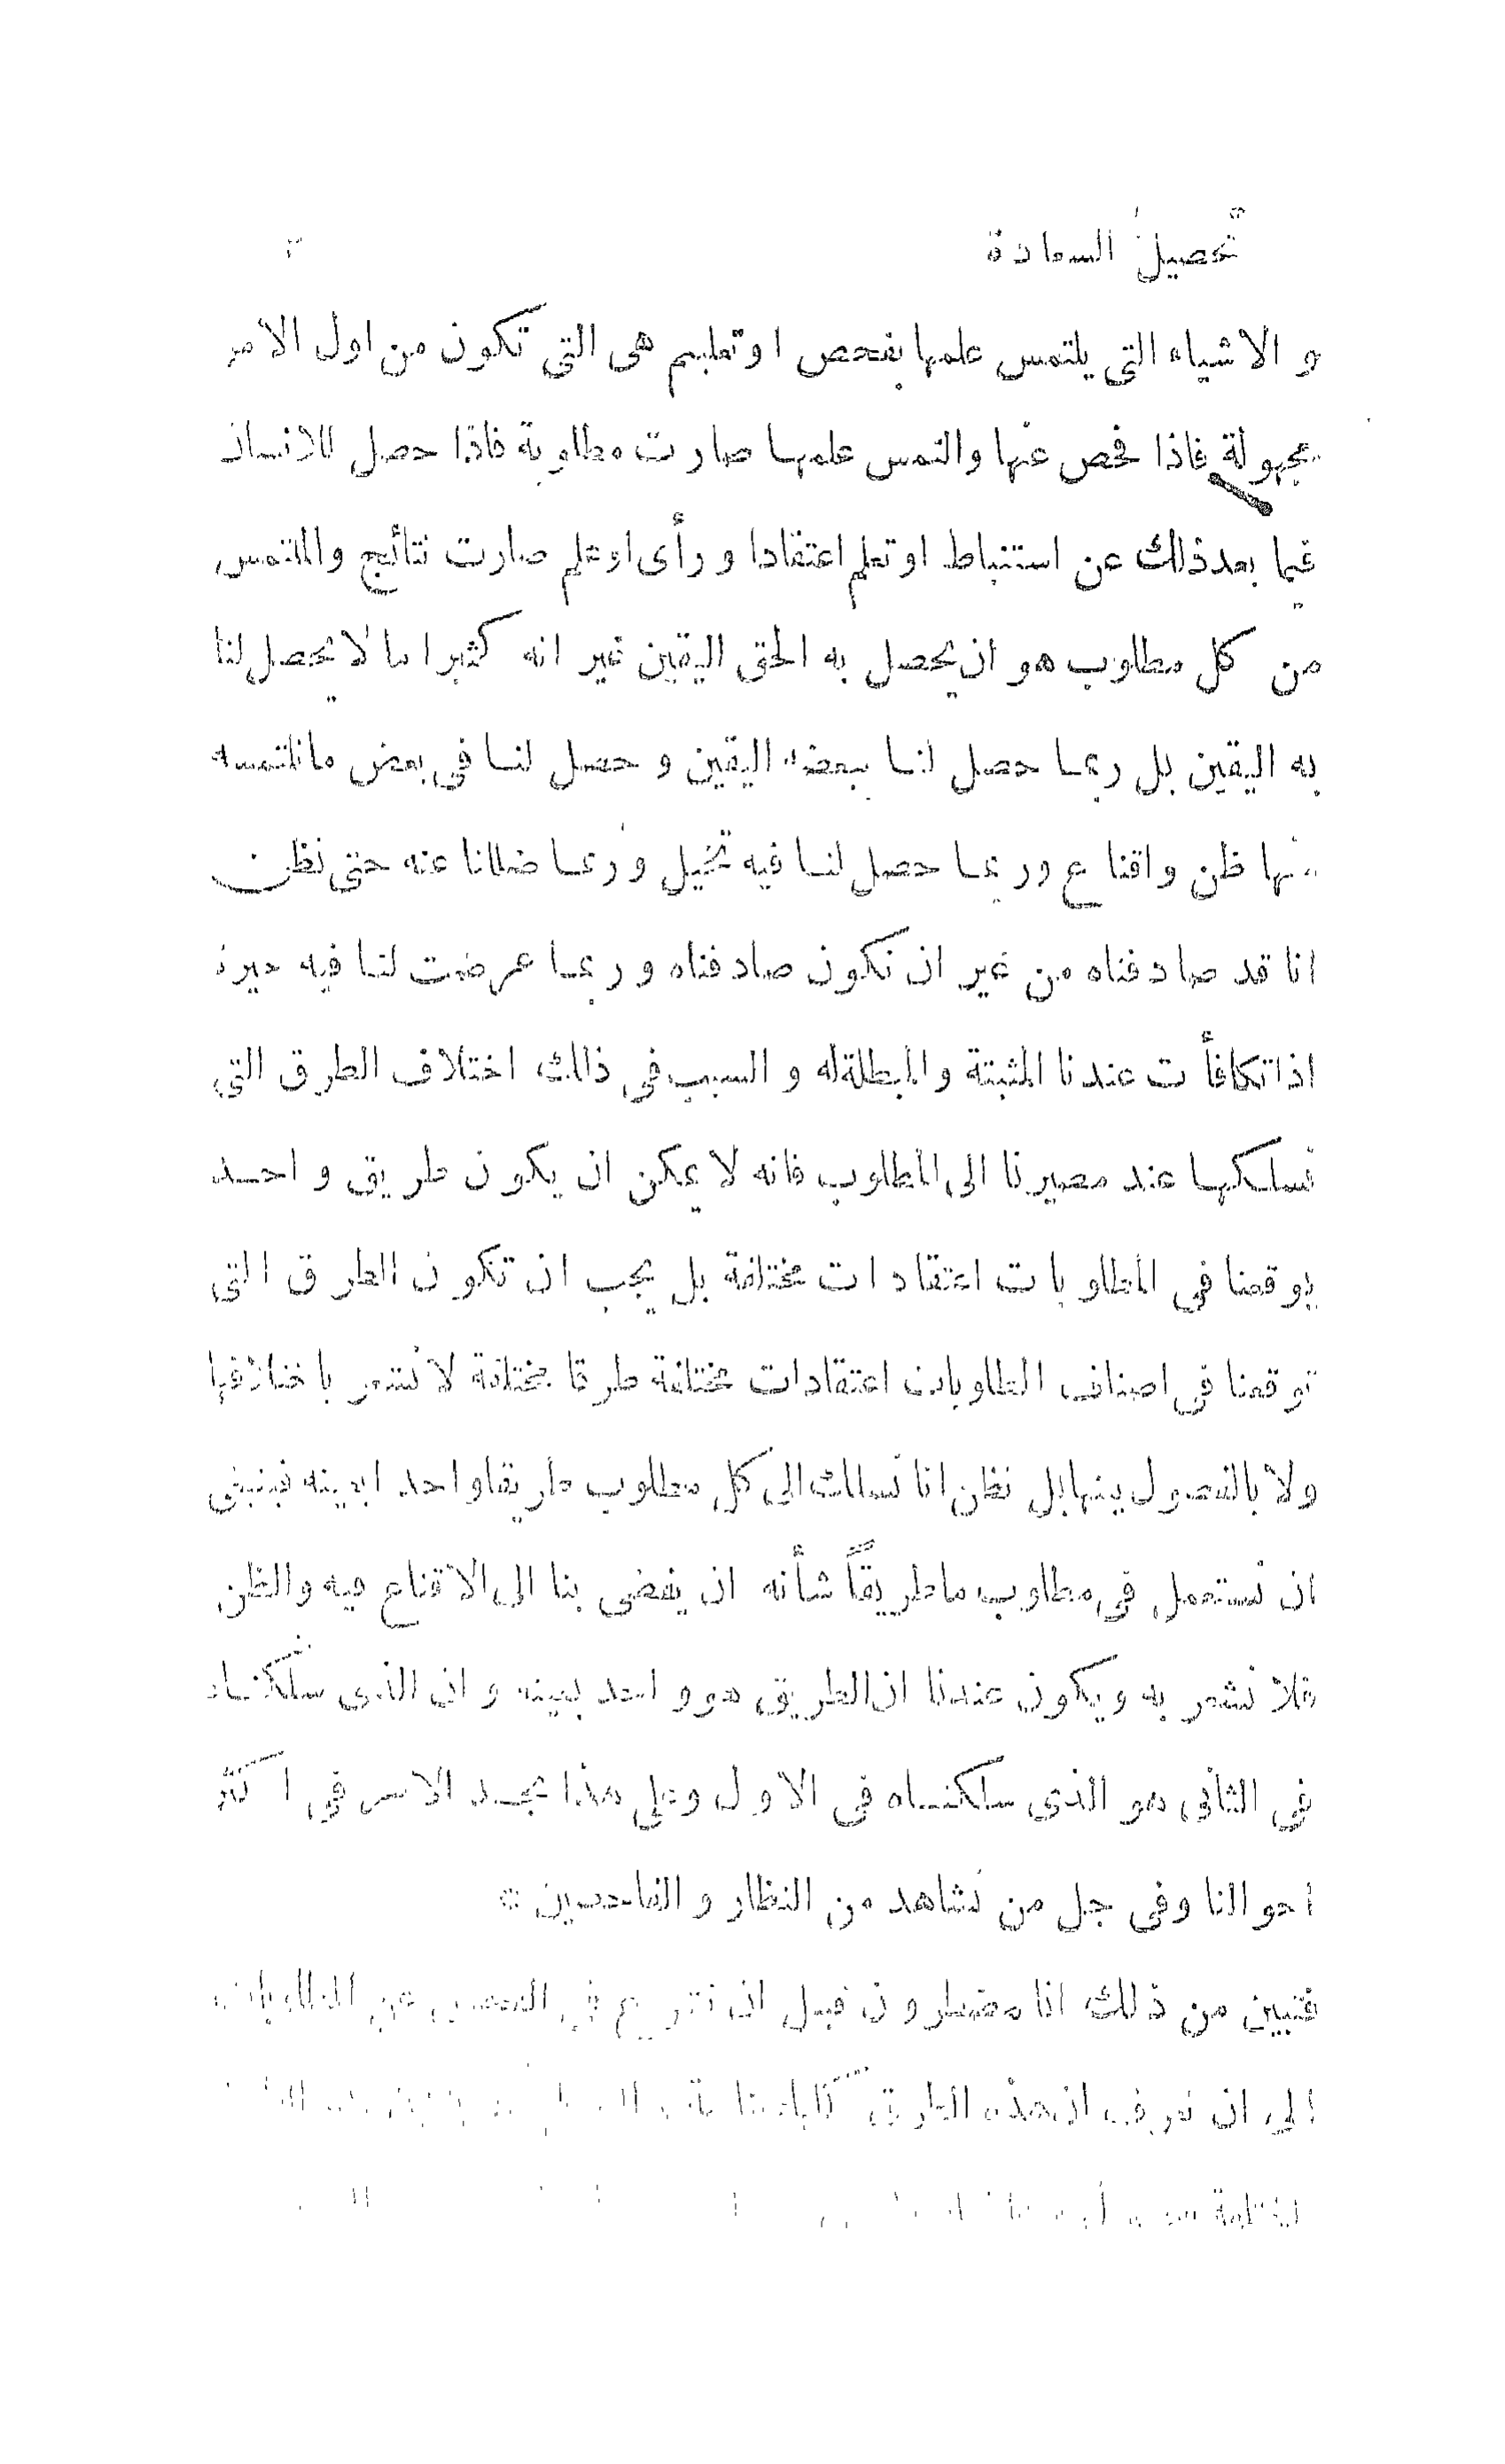 تحصيل السعادة ٣
و الاشياء التى يلتمس علمها بفحص او تعليم هى التى تكون من اول الامر
مجهولة فاذا فحص عنها والتمس علمها صارت مطلوبة فاذا حصل للانسان
فيما بعد ذلك عن استنباط او تعلم اعتقادا و رأى او علم صارت نتائج والملتمس
من كل مطلوب هو ان يحصل به الحق اليقين غير انه كثيرا ما لا يحصل لنا
به اليقين بل ربما حصل لنا ببعضه اليقين و حصل لنا فى بعض ما نلتمسه
منها ظن واقناع وربما حصل لنا فيه تخيل وربما ضللنا عنه حتى نظن
انا قد صادفناه من غير ان نكون صادفناه و ربما عرضت لنا فيه حيرة
اذا تكافأت عندنا المثبتة والمبطلة له و السبب فى ذلك اختلاف الطرق التى
نسلكها عند مصيرنا الى المطلوب فانه لا يمكن ان يكون طريق واحد
يوقعنا فى المطلوبات اعتقادات مختلفة بل يجب ان تكون الطرق التى
توقعنا فى اصناف المطلوبات اعتقادات مختلفة طرقا مختلفة لا نشعر باختلافها
ولا بالفصول بينها بل نظن انا نسلك الى كل مطلوب طريقا واحدا بعينه فينبغى
ان نستعمل فى مطلوب ما طريقاً شأنه ان يفضى بنا الى الاقناع فيه والظن
فلا نشعر به ويكون عندنا ان الطريق هو واحد بعينه و ان الذى سلكناه
فى الثانى هو الذى سلكناه فى الاول وعلى هذا نجد الامر فى اكثر
احوالنا وفى جل من نشاهد من النظار و الفاحصين *
فتبين من ذلك انا مضطرون قبل ان نشرع فى الفحص عن المطلوبات
الى ان نعرف ان هذه الطرق كلها
مختلفة